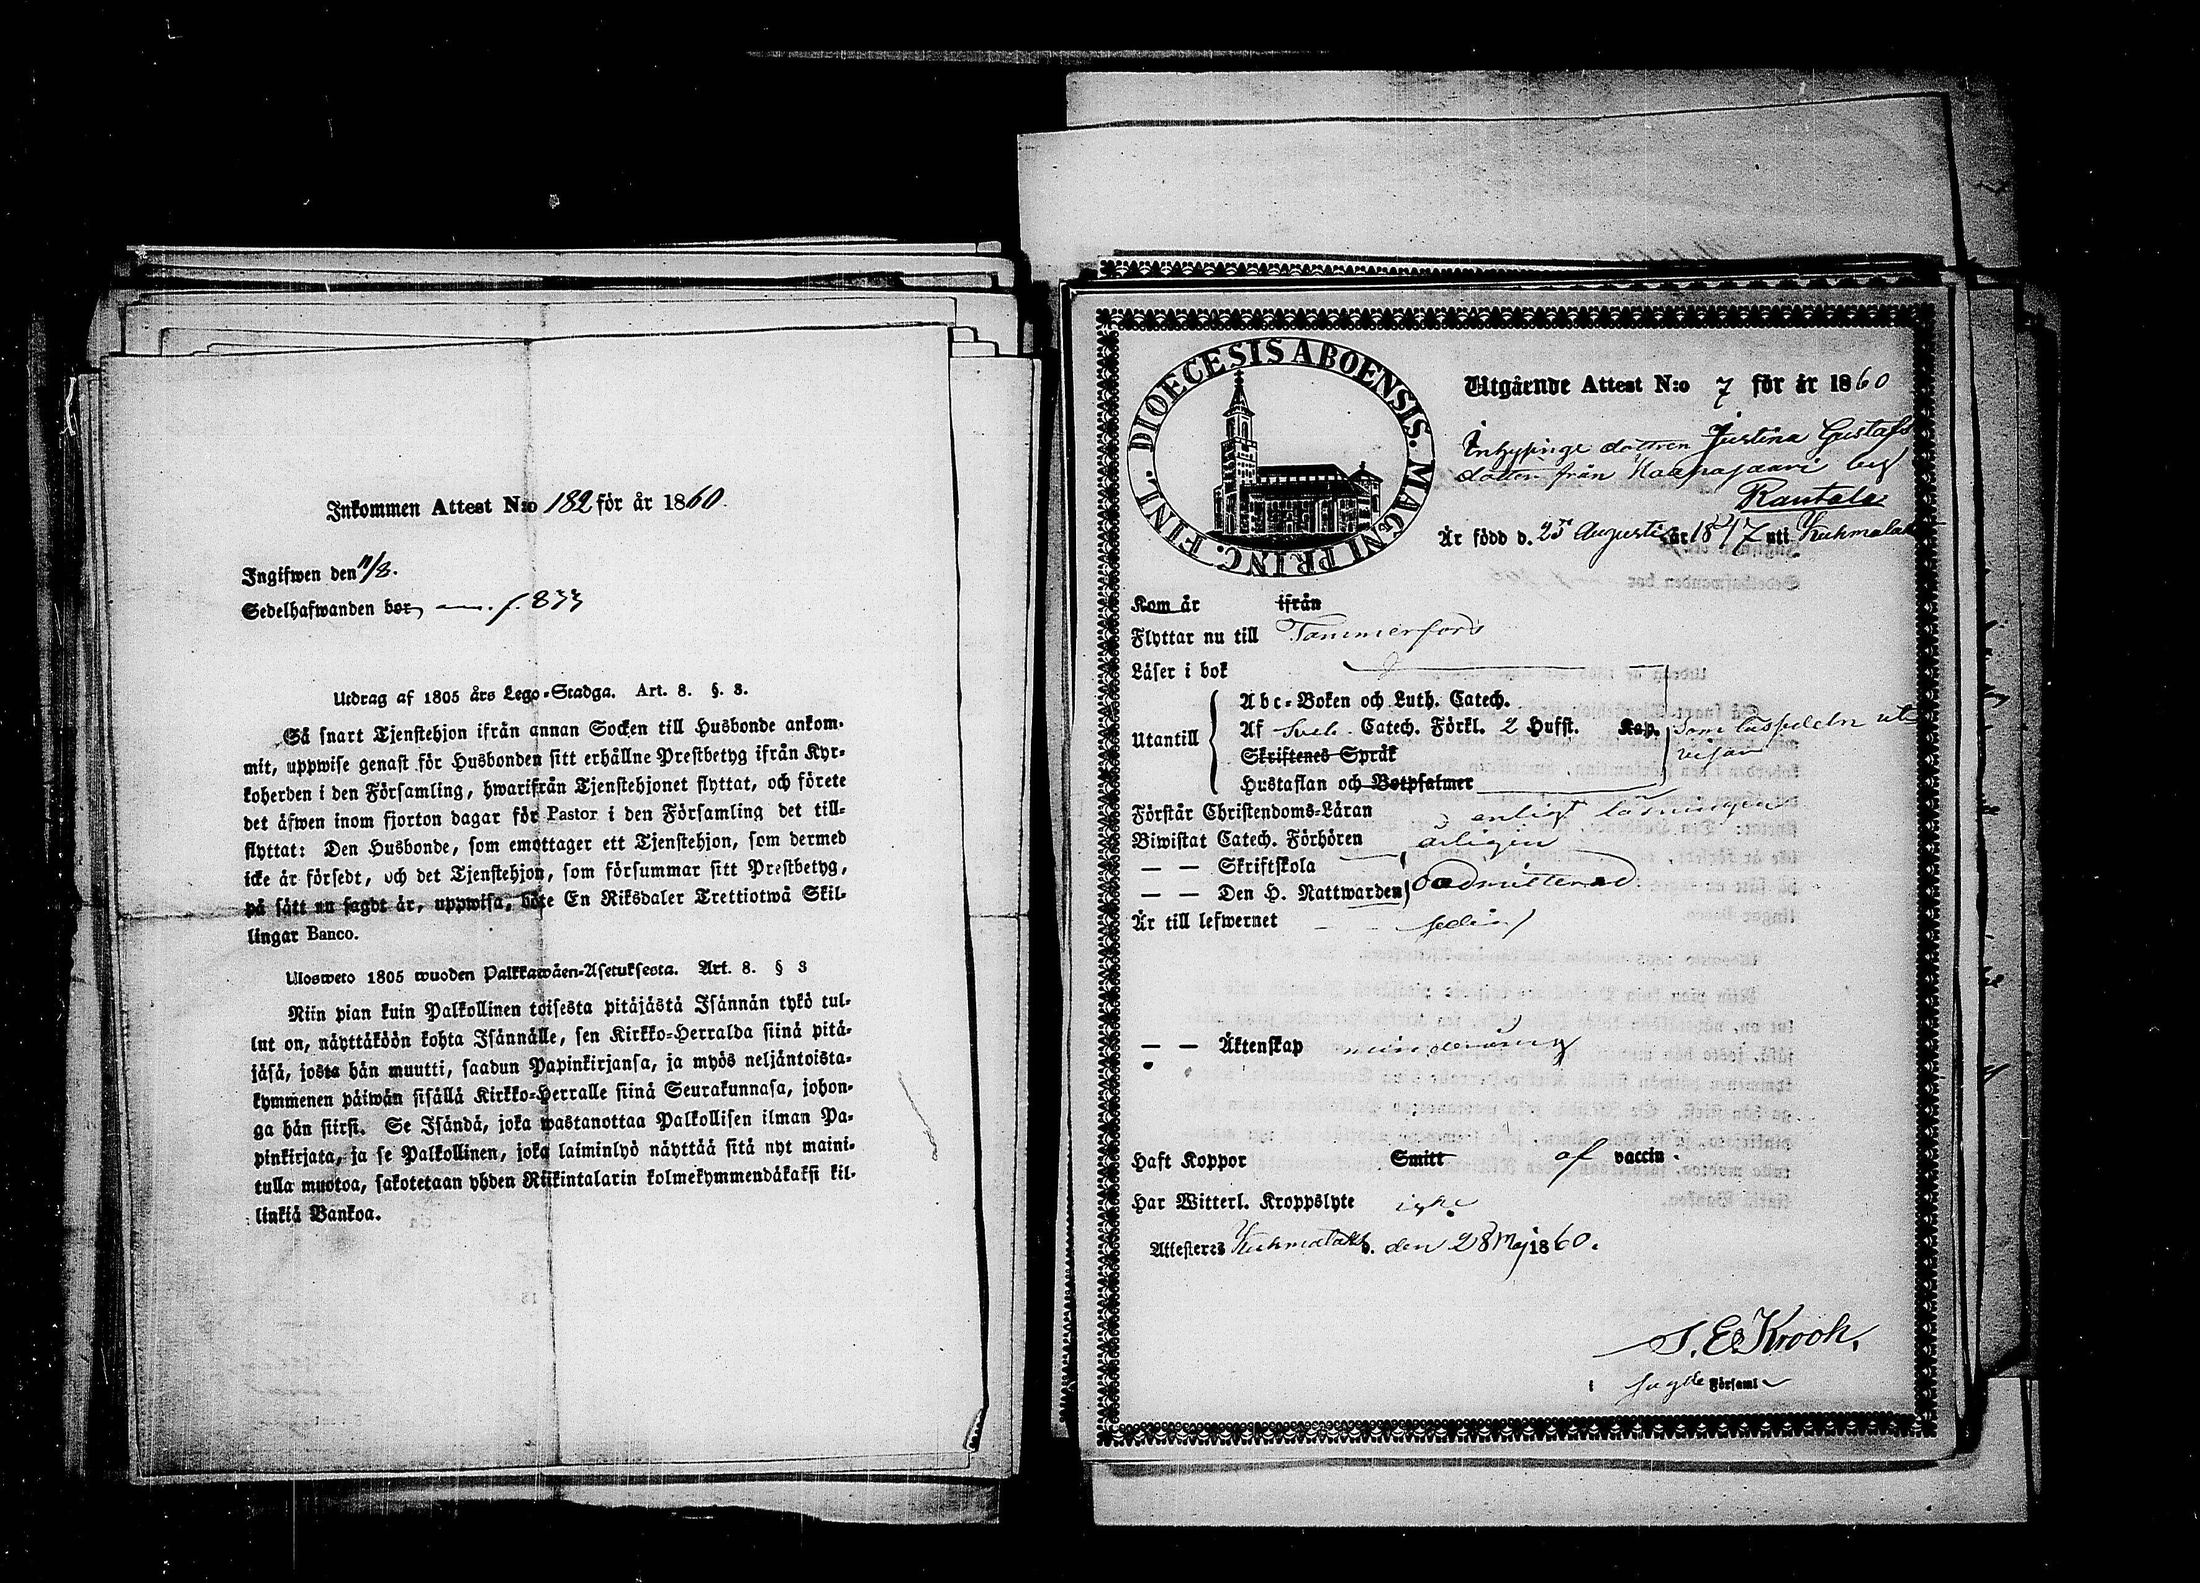 Inkommen Attest N:o 182 för år 1860.
Ingifwen den 11/8.
Sedelhafwanden bor f. 833
Utdrag af 1805 års Lego-Stadga. Art. 8. §. 3.
Så snart Tjenstehjon ifrån annan Socken till Husbonde ankom-
mit, uppwise genast för Husbonden sitt erhållne Prestbetyg ifrån Kyr-
koherden i den Församling, hwarifrån Tjenstehjonet flyttat, och förete
det äfwen inom fjorton dagar för Pastor i den Församling det till-
flyttat: Den Husbonde, som emottager ett Tjenstehjon, som dermed
icke är försedt, och det Tjenstehjon, som försummar sitt Prestbetyg,
på sätt nu sagdt är, uppwisa, böte En Riksdaler Trettiotwå Skil-
lingar Banco.
Ulosweto 1805 wuoden Palkkawäen-Asetuksesta. Art. 8. § 3
Niin pian kuin Palkollinen toisesta pitäjästä Isännän tykö tul-
lut on, näyttäköön kohta Isännälle, sen Kirkko-Herralda siinä pitä-
jäsä, josta hän muutti, saadun Papinkirjansa, ja myös neljäntoista-
kymmenen päiwän sisällä Kirkko-Herralle siinä Seurakunnasa, johon-
ga hän siirsi. Se Isändä, joka wastanottaa Palkollisen ilman Pa-
pinkirjata, ja se Palkollinen, joka laiminlyö näyttää sitä nyt maini-
tulla muotoa, sakotetaan yhden Riikintalarin kolmekymmendäkaksi kil-
linkiä Bankoa.
DIOECESIS ABOENSIS. MAGNI PRINC. FINL.
Utgående Attest N:o 7 för år 1860
Inhysinge dottren Justina Gustafs
dotter från Haapajaervi by
Rantala
Är född d. 25 Augusti år 1847 uti Kuhmalaks
Kom år ifrån
Flyttar nu till Tammerfors
Läser i bok
Abc-Boken och Luth. Catech.
Utantill Af Sveb. Catech. Förkl. 2 Hufst. Kap.
Skriftenes Språk
Hustaflan och Botpsalmer
Förstår Christendoms-Läran enligt läsningen
Biwistat Catech. Förhören årligen
— — Skriftskola
— — Den H. Nattwarden oadmitterad
Är till lefwernet sedig
— — Äktenskap minderårig
Haft Koppor Smitt af vaccin.
Har Witterl. Kroppslyte icke
Attesteres Kuhmalaks. den 28 Maj 1860.
S. E. Krook.
i sagde Församl